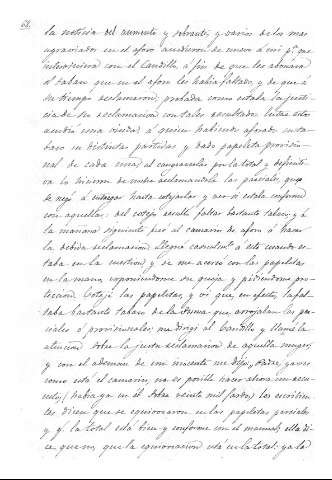 la noticia del aumento y sobrante, y varios de los mas
agraviados en el aforo acudieron de nuevo á mi pª que
intercediera con el Caudillo á fin de que les abonara
el tabaco que en el aforo les había faltado, y de que á
su tiempo reclamaron, probada como estaba la justi-
cia de su reclamacion con tales resultados. Entre estos
acudió una viuda á quien habiendo aforado su ta-
baco en distintas partidas y dado papeleta provisio-
nal de cada una, al cangearselas por la total y definiti-
va la hicieron de menos reclamandole las parciales, que
se negó á entregar hasta cotejarlas y ver si estaba conforme
con aquella: del cotejo resultó faltar bastante tabaco, y á
la mañana siguiente fué al camarin de aforo á hacer
la debida reclamacion. Llegué casualmte á este cuando es-
taba en la cuestion, y se me acercó con las papeletas
en la mano, exponiendome su queja y pidiendome pro-
teccion. Cotejé las papeletas, y ví que, en efecto, la fal-
taba bastante tabaco de la suma que arrojaban las par-
ciales ó provisionales; me dirigí al Caudillo y llamé la
atencion sobre la justa reclamacion de aquella muger,
y con el ademan de un inocente me dijo: Padre, ya ve
como está el camarin, no es posible hacer ahora un recu-
ento, (habia ya en él sobre veinte mil fardos) los escribien-
tes dicen que se equivocaron en las papeletas parciales
y q. la total está bien y conforme con el manual; ella di-
ce, que no, que la equivocacion está en la total: ya la